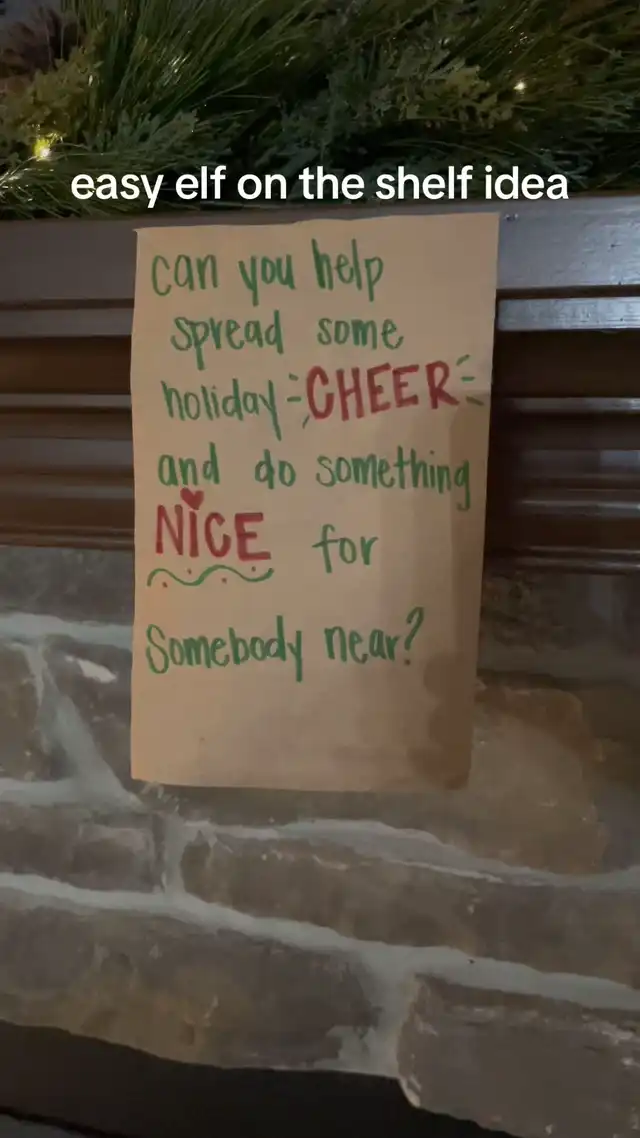 easy elf on the shelf idea
can you help
spread some
holiday CHEER
and do something
NICE for
Somebody near?